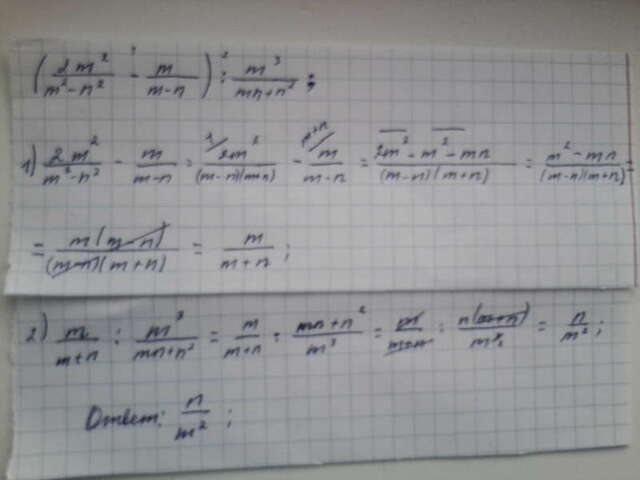 (2m²/(m²-n²) - m/(m-n)) : m³/(mn+n²) ;
1) 2m²/(m²-n²) - m/(m-n) = 2m²/((m-n)(m+n)) - m/(m-n) = (2m²-m²-mn)/((m-n)(m+n)) = (m²-mn)/((m-n)(m+n)) =
= m(m-n)/((m-n)(m+n)) = m/(m+n) ;
2) m/(m+n) : m³/(mn+n²) = m/(m+n) · (mn+n²)/m³ = m/(m+n) · n(m+n)/m³ = n/m² ;
Ответ: n/m² ;